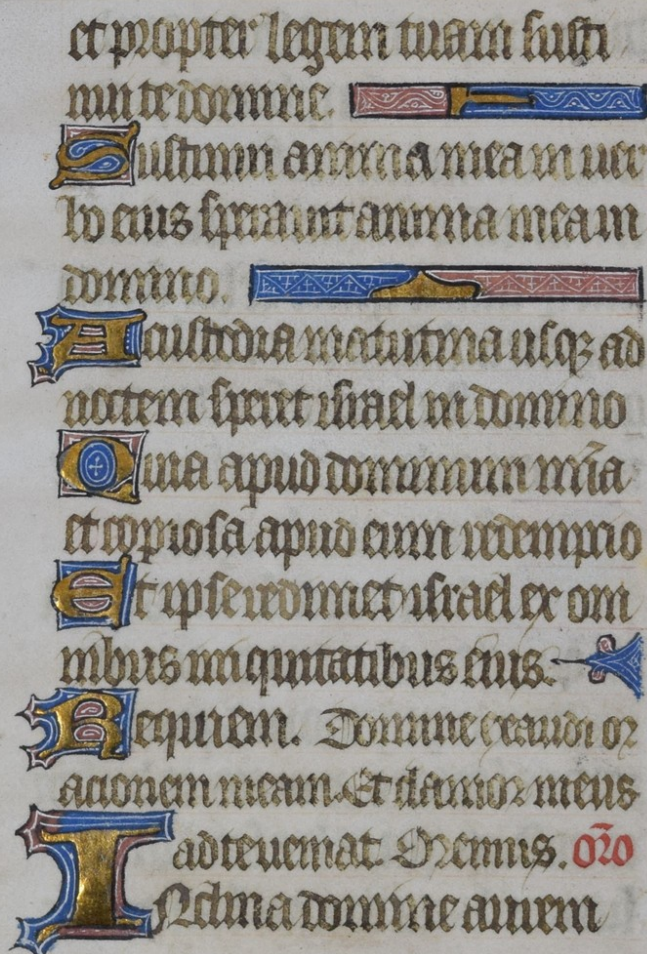 et propter legem tuam susti
nui te domine.
Sustinuit anima mea in uer
bo eius sperauit anima mea in
domino.
A custodia matutina usqꝫ ad
noctem speret israel in domino
Quia apud dominum mīa
et copiosa apud eum redemptio
Et ipse redimet israel ex om
nibus iniquitatibus eius.
Requiem. Domine exaudi or
acionem meam. Et clamor meus
ad te ueniat. Oremus. or̄o
INclina domine aurem